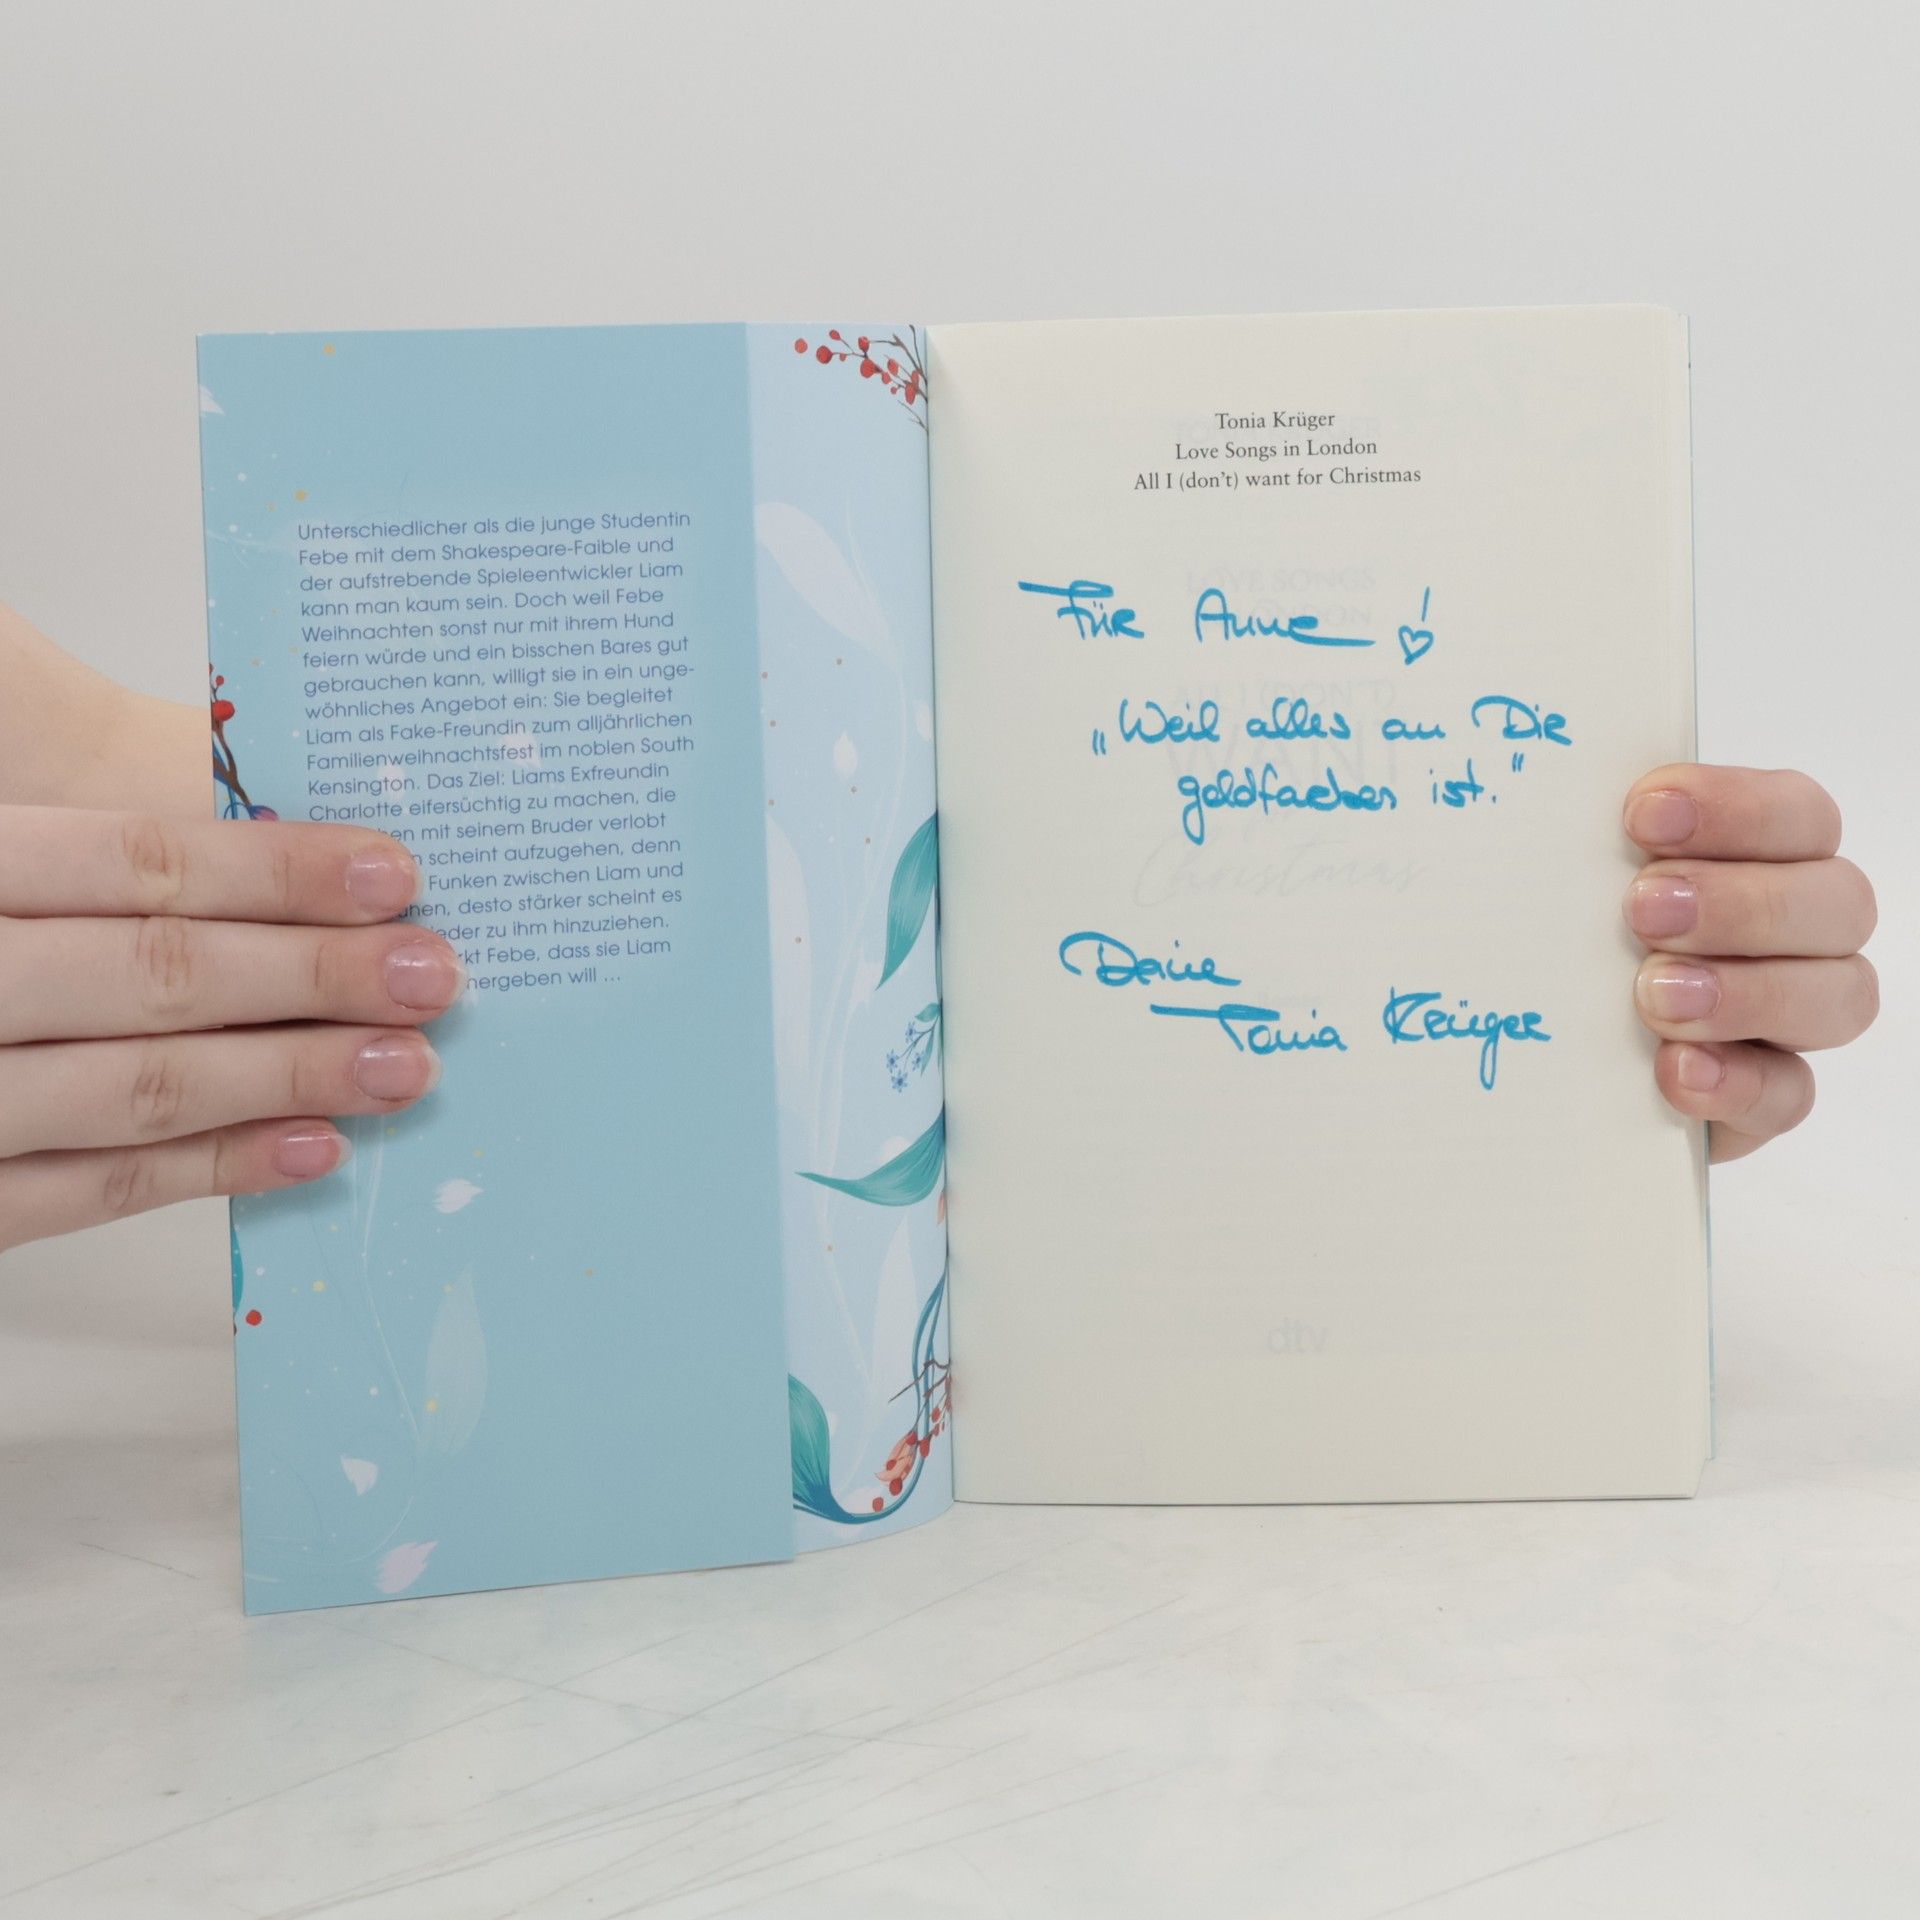 Unterschiedlicher als die junge Studentin
Febe mit dem Shakespeare-Faible und
der aufstrebende Spieleentwickler Liam
kann man kaum sein. Doch weil Febe
Weihnachten sonst nur mit ihrem Hund
feiern würde und ein bisschen Bares gut
gebrauchen kann, willigt sie in ein unge-
wöhnliches Angebot ein: Sie begleitet
Liam als Fake-Freundin zum alljährlichen
Familienweihnachtsfest im noblen South
Kensington. Das Ziel: Liams Exfreundin
Charlotte eifersüchtig zu machen, die
en mit seinem Bruder verlobt
scheint aufzugehen, denn
Funken zwischen Liam und
hen, desto stärker scheint es
eder zu ihm hinzuziehen.
kt Febe, dass sie Liam
hergeben will ...
Tonia Krüger
Love Songs in London
All I (don't) want for Christmas
Für Anne !
„Weil alles an Dir
goldfarben ist."
Deine
Tonia Krüger
LOVE SONGS
LONDON
ALL I (DON'T)
WANT
Christmas
dtv